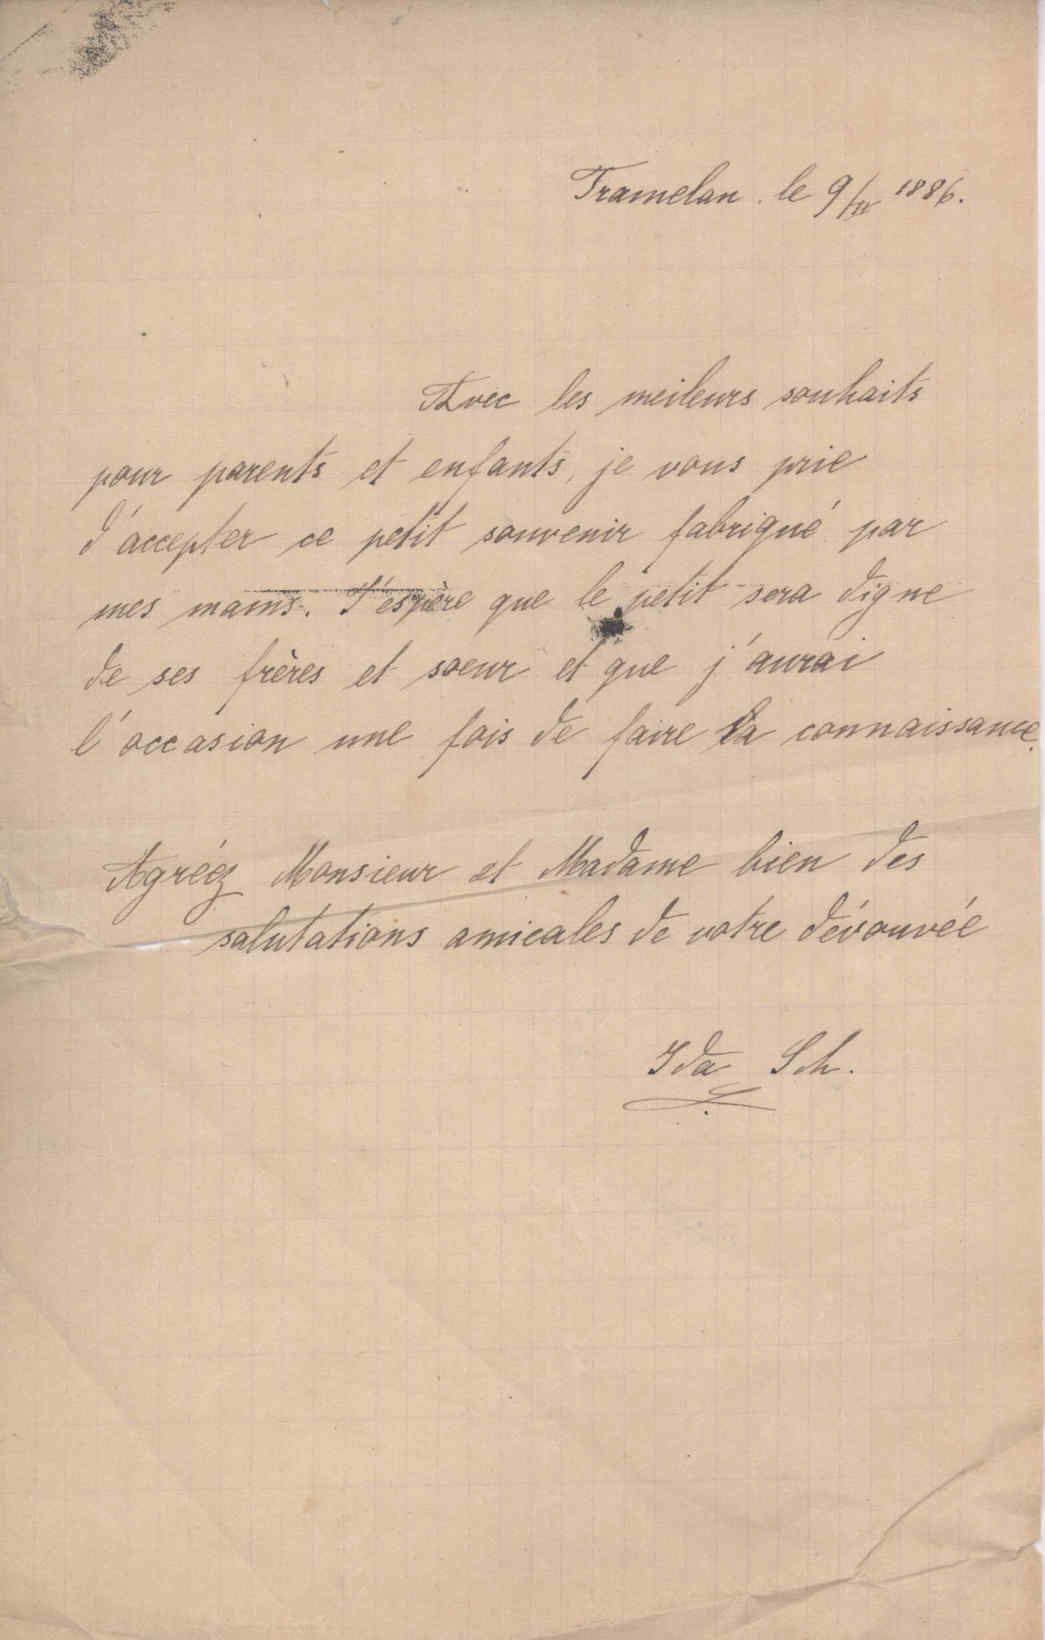 Tramelan. le 9/II 1886.
Avec les meileurs souhaits
pour parents et enfants, je vous prie
d'accepter ce petit souvenir fabriqué par
mes mains. J'espère que le petit sera digne
de ses frères et soeur et que j'aurai
l'occasion une fois de faire la connaissance.
Agréez Monsieur et Madame bien des
salutations amicales de votre dévouvée
Ida Sch.